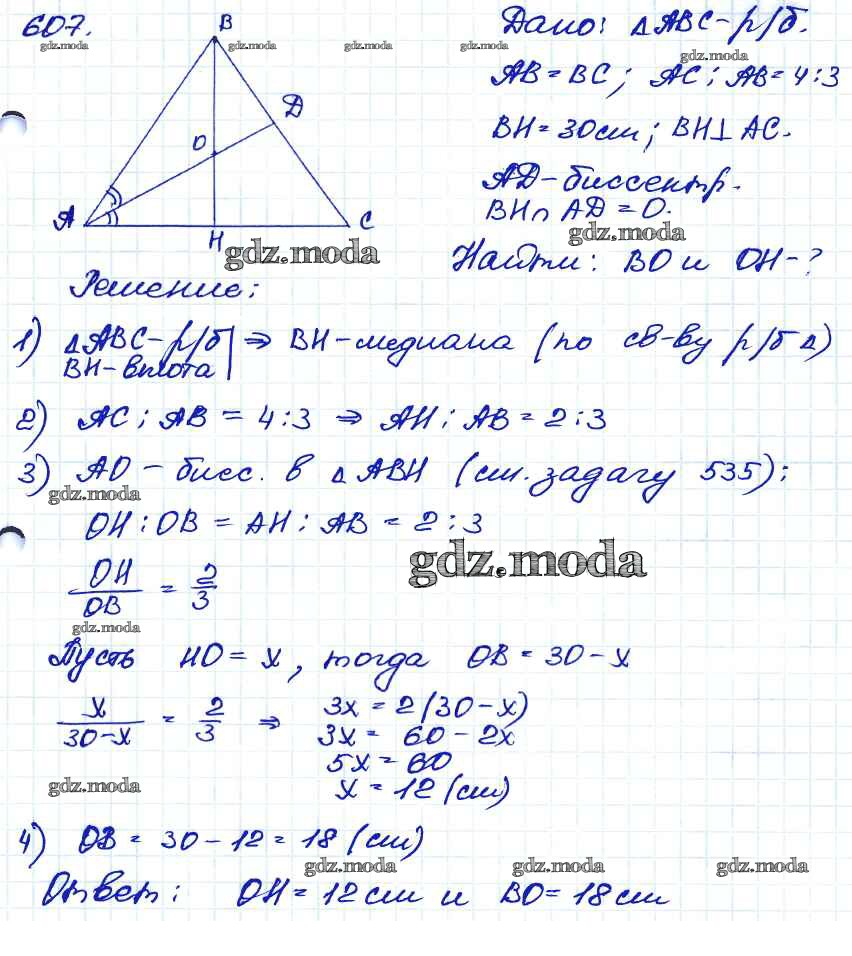 607.
gdz.moda
gdz.moda
gdz.moda
B
D
O
A
H
C
gdz.moda
Дано: ΔABC-р/б.
gdz.moda
AB=BC; AC:AB=4:3
BH=30см; BH⊥AC.
AD-биссектр.
BH∩AD=O.
gdz.moda
Найти: BO и OH-?
Решение:
1) ΔABC-р/б | ⇒ BH-медиана (по св-ву р/б Δ)
BH-высота
2) AC:AB=4:3 ⇒ AH:AB=2:3
3) AO-бисс. в ΔABH (см. задачу 535);
gdz.moda
OH:OB=AH:AB=2:3
gdz.moda
OH/OB = 2/3
gdz.moda
Пусть HO=x, тогда OB=30-x
x/(30-x) = 2/3 ⇒ 3x=2(30-x)
3x= 60-2x
5x=60
gdz.moda
x=12(см)
4) OB=30-12=18(см)
gdz.moda gdz.moda gdz.moda
Ответ: OH=12см и BO=18см